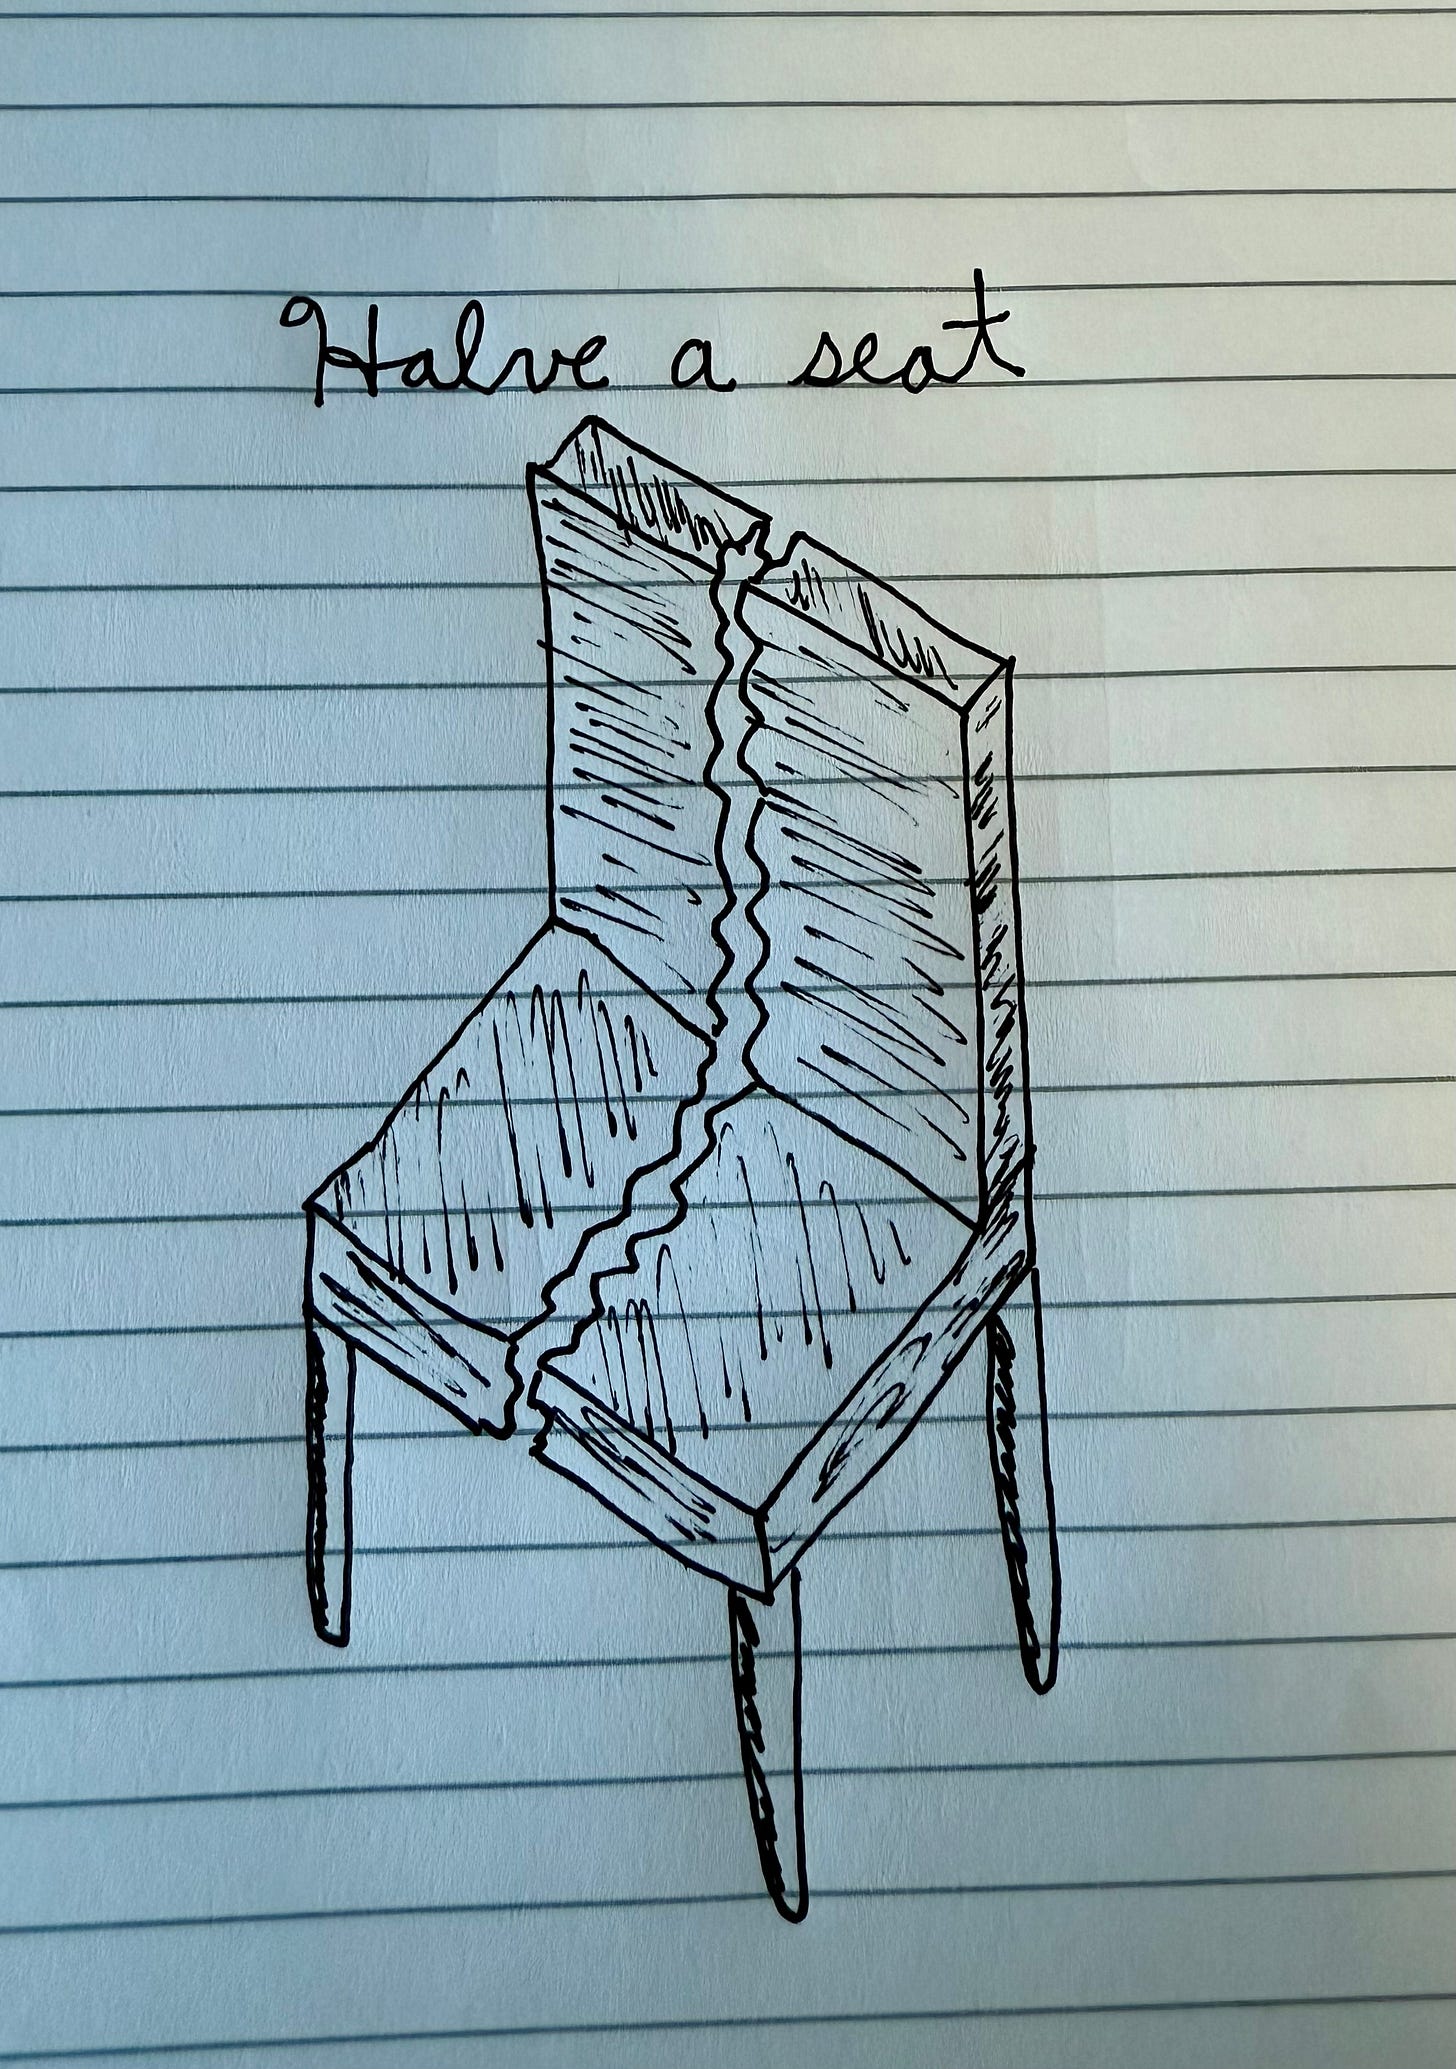 Halve a seat